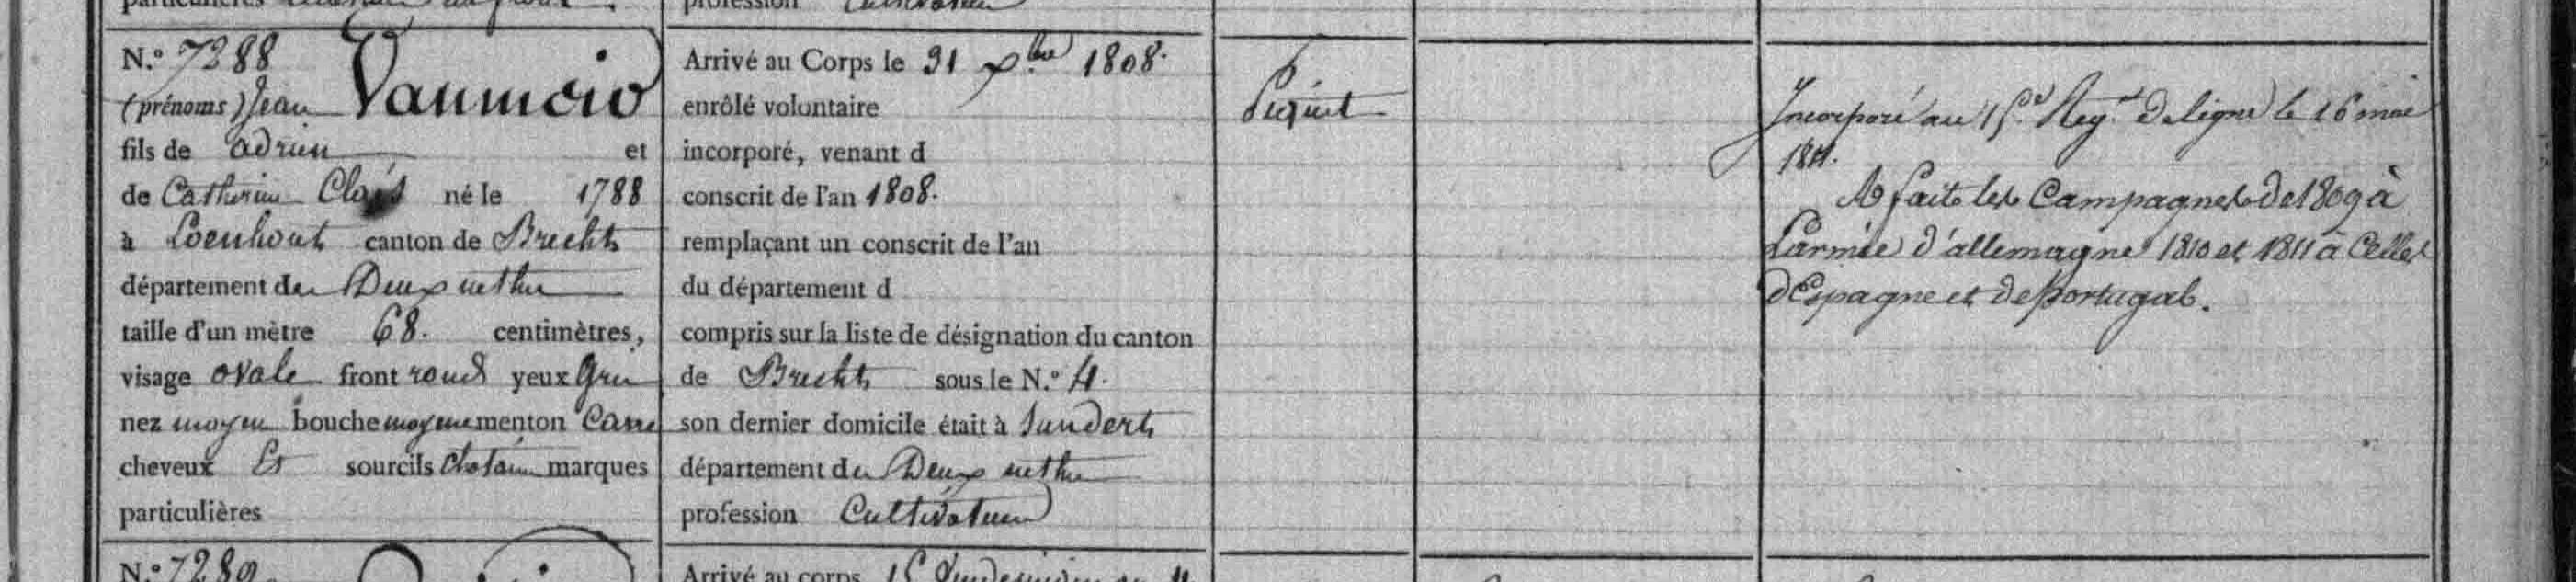 N.º 7288 Vanmoïo
(prénoms) Jean
fils de adrien et
de Catherine Claes né le 1788
à Loenhout canton de Brecht
département des Deux nethes
taille d'un mètre 68. centimètres,
visage ovale front rond yeux Gris
nez moyen bouche moyenne menton Carré
cheveux Et sourcils chatain marques
particulières
N.º 7289
Arrivé au Corps le 31 xbre 1808.
enrôlé volontaire
incorporé, venant d
conscrit de l'an 1808.
remplaçant un conscrit de l'an
du département d
compris sur la liste de désignation du canton
de Brecht sous le N.º 4.
son dernier domicile était à Sundert
département des Deux nethes
profession Cultivateur
Arrivé au corps 15
Incorporé au 15e Regt De ligne le 16 mai
1811.
A fait les Campagnes de 1809 à
L'armée d'allemagne 1810 et 1811 à Celles
d'Espagne et de Portugal.